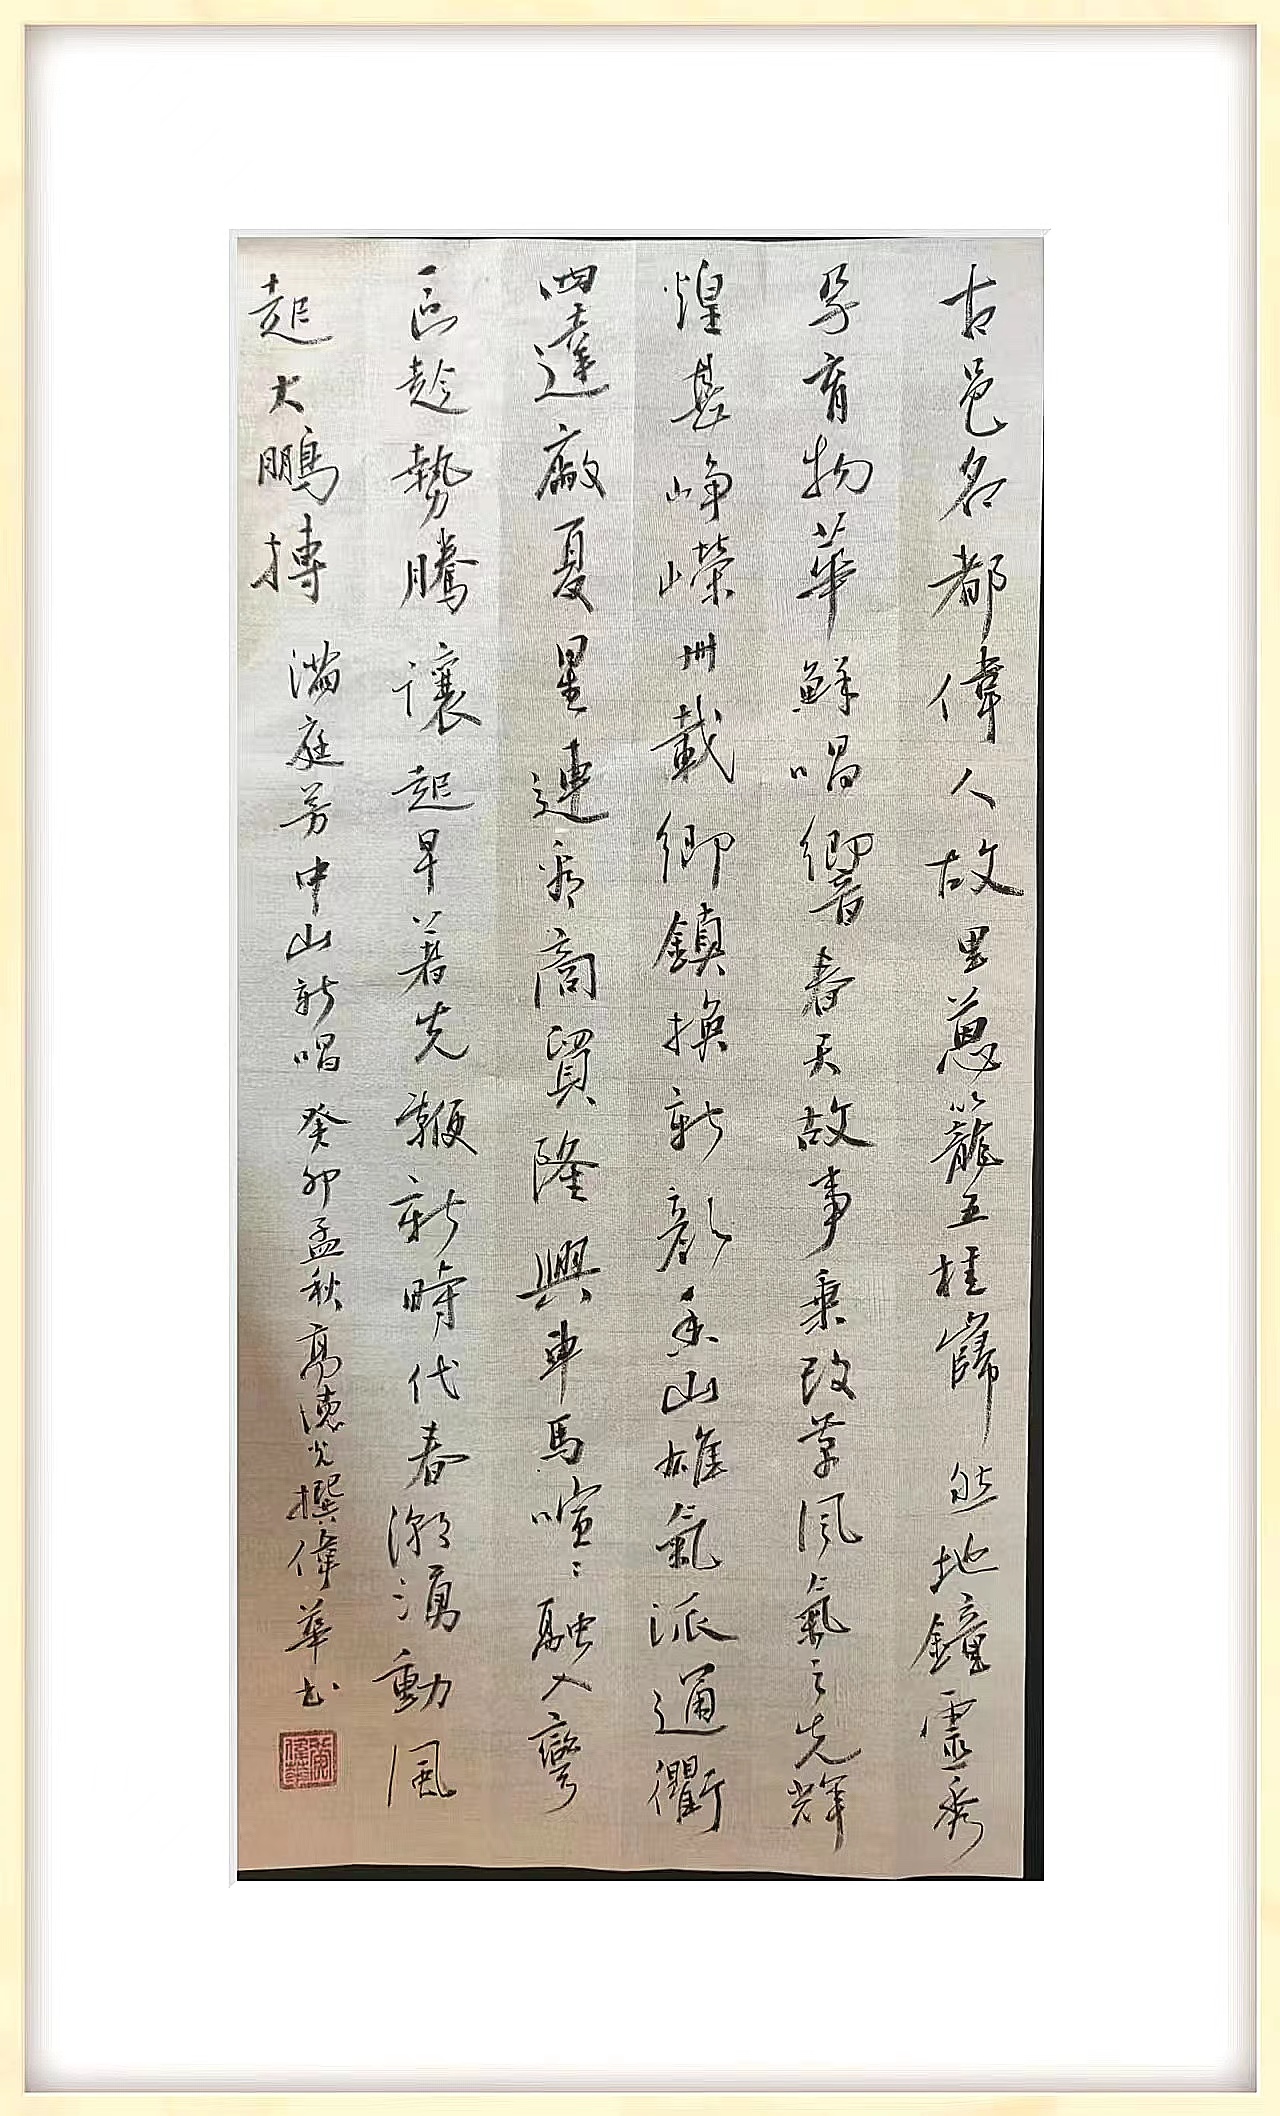 古邑名都偉人故里蔥籠五桂巋然地鐘靈秀
孕育物華鮮唱響春天故事乘改革風氣之先輝
煌甚崢嶸卅載鄉鎮換新顏香山雄氣派通衢
四達廠夏星連看商貿隆興車馬喧喧融入彎
區趁勢騰讓起早著先鞭新時代春潮湧動風
起大鵬摶 滿庭芳中山新唱 癸卯孟秋高德光撰偉華書